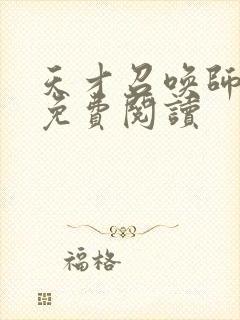 天才召喚師
免費閱讀
福格